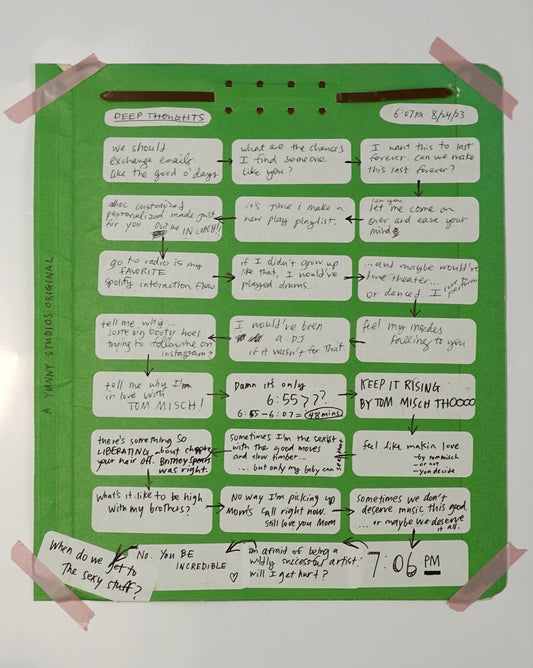 DEEP THOUGHTS
6:07PM 8/24/23
we should
exchange emails
like the good o' days
what are the chances
I find someone
like you?
I want this to last
forever. can we make
this last forever?
adhoc customized
personalized made just
for you
ME IN COACH!!
it's time i make a
new play playlist.
can you
let me come on
over and ease your
mind
go to radio is my
FAVORITE
spotify interaction flow
if I didn't grow up
like that, I would've
played drums
...and maybe would've
done theater...
or danced. I love to perform
tell me why...
some big booty hoes
trying to follow me on
instagram?
I would've been
a DJ
if it wasn't for that.
feel my insides
falling to you
tell me why I'm
in love with
TOM MISCH!
Damn it's only
6:55???
6:55 - 6:07 = 48 mins
KEEP IT RISING
BY TOM MISCH THOOOO
there's something so
LIBERATING about chopping
your hair off. Britney Spears
was right.
sometimes I'm the sexist
with the good moves
and slow timber...
... but only my baby can see that
feel like makin love
- by tom misch
- or not
- you decide
what's it like to be high
with my brothers?
No way I'm picking up
Mom's call right now.
still love you Mom
sometimes we don't
deserve music this good
... or maybe we deserve
it all.
When do we get to
The sexy stuff?
No. YOU BE
INCREDIBLE
afraid of being a
wildly successful artist.
will I get hurt?
7:06 PM
A YUNNY STUDIOS ORIGINAL